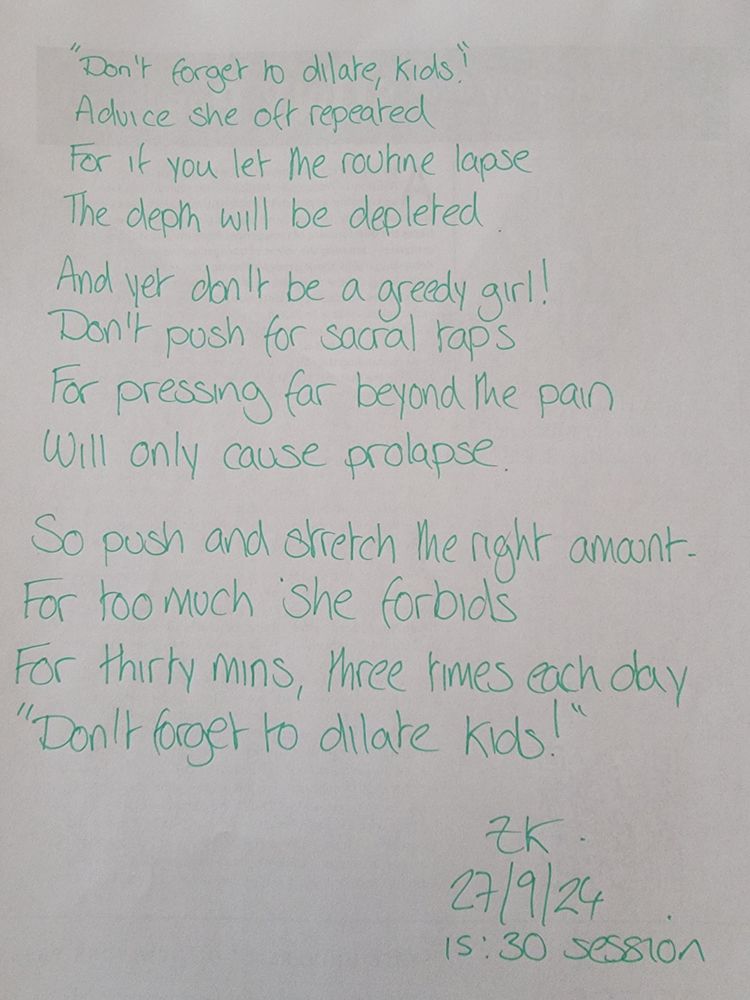 "Don't forget to dilate, kids!"
Advice she oft repeated
For if you let the routine lapse
The depth will be depleted.
And yet don't be a greedy girl!
Don't push for sacral taps
For pressing far beyond the pain
Will only cause prolapse.
So push and stretch the right amount-
For too much she forbids
For thirty mins, three times each day
"Don't forget to dilate kids!"
ZK.
27/9/24
15:30 session